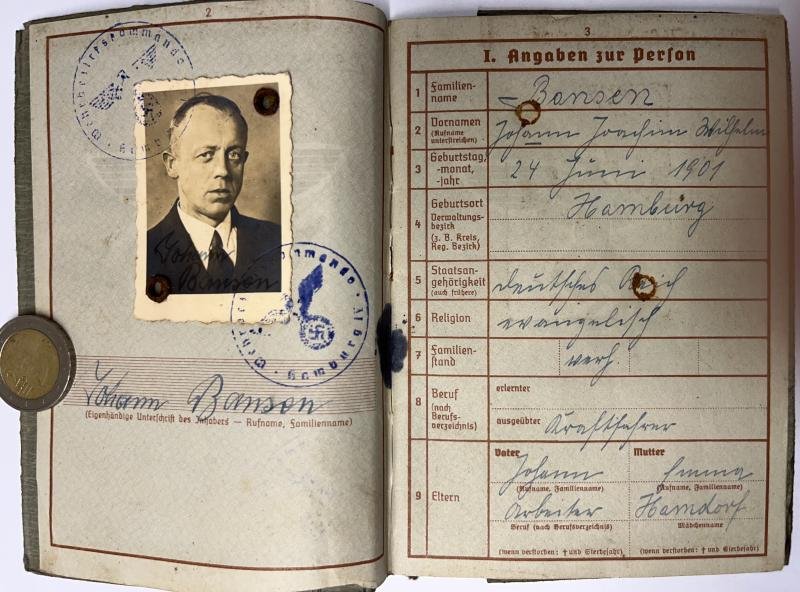 2
Wehrbezirkskommando
Hamburg
Johann
Bansen
Johann Bansen
(Eigenhändige Unterschrift des Inhabers — Rufname, Familienname)
3
I. Angaben zur Person
1 Familien-
name
Bansen
2 Vornamen
(Rufname
unterstreichen)
Johann Joachim Wilhelm
3 Geburtstag,
-monat,
-jahr
24 Juni 1901
4 Geburtsort
Verwaltungs-
bezirk
(z. B. Kreis,
Reg. Bezirk)
Hamburg
5 Staatsan-
gehörigkeit
(auch frühere)
deutsches Reich
6 Religion
evangelisch
7 Familien-
stand
verh.
8 Beruf
(nach
Berufs-
verzeichnis)
erlernter
ausgeübter Kraftfahrer
9 Eltern
Vater Mutter
Johann Emma
(Rufname, Familienname) (Rufname, Familienname)
Arbeiter Hamdorf
Beruf (nach Berufsverzeichnis) Mädchenname
(wenn verstorben: † und Sterbejahr) (wenn verstorben: † und Sterbejahr)